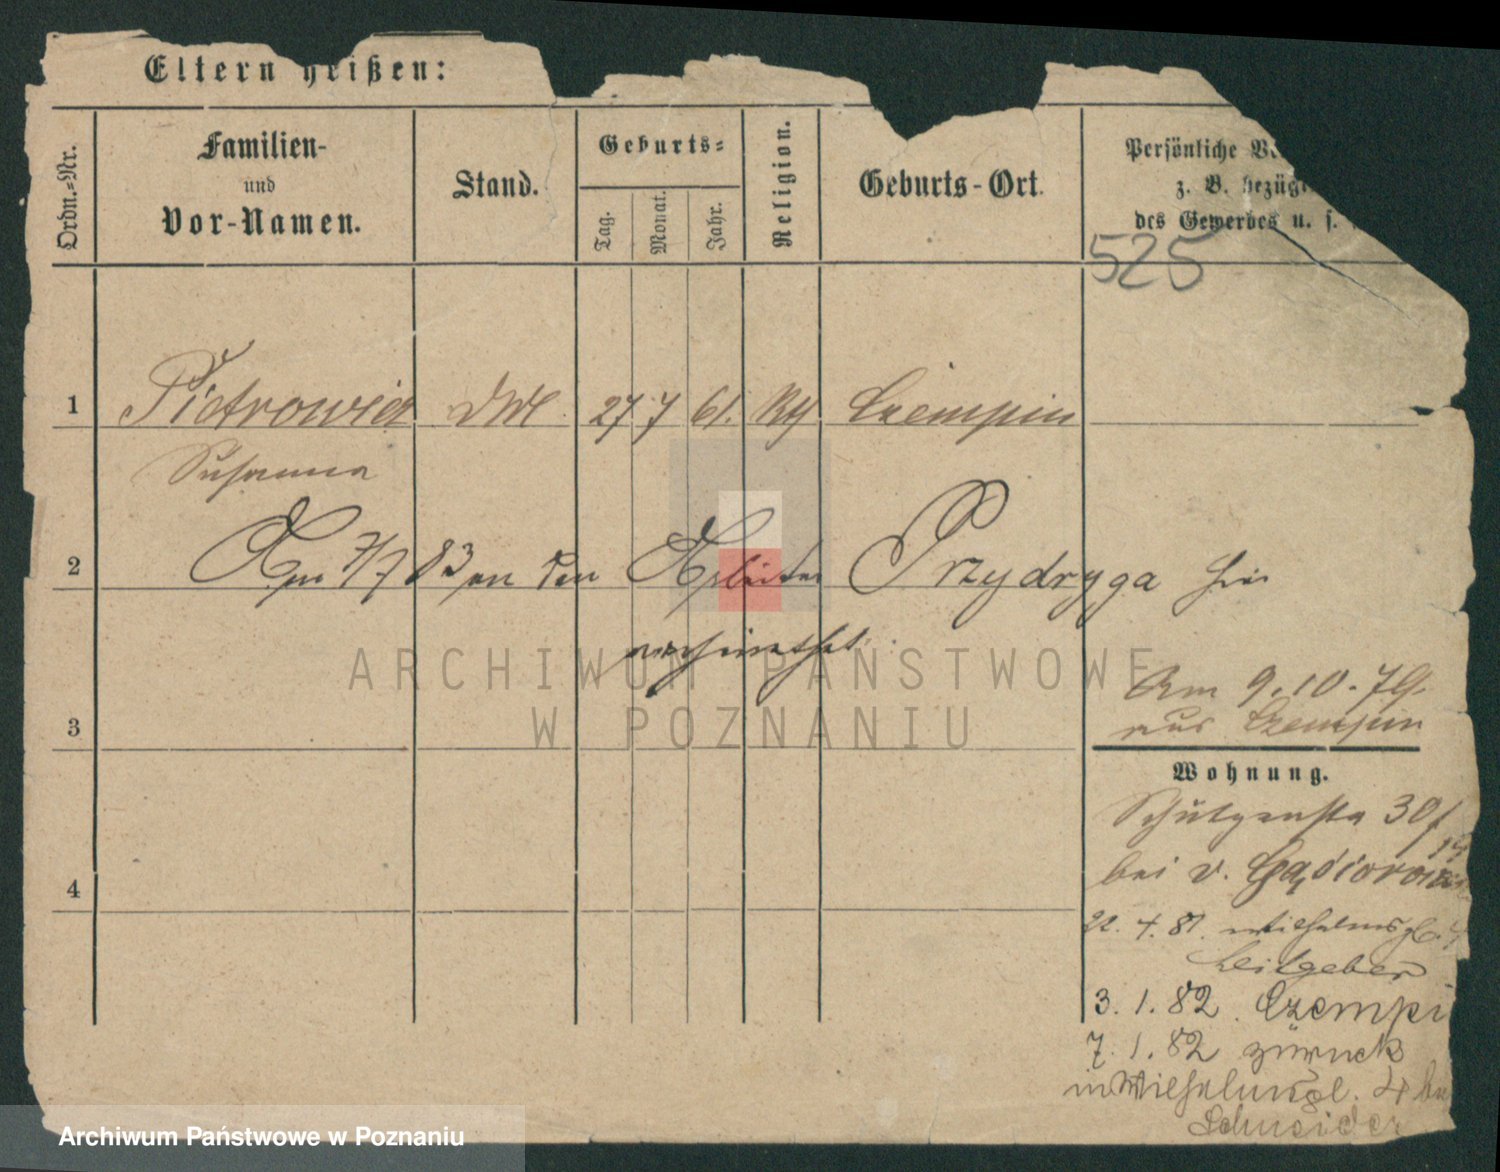 Eltern heißen:
Ordn.-Nr.
Familien-
und
Vor-Namen.
Stand.
Geburts-
Tag.
Monat.
Jahr.
Religion.
Geburts-Ort.
Persönliche
z. B. bezüg
des Gewerbes u. s.
525
1 Pietrowicz 27 7 61. Czempin
Susanna
2 Am 7/7 83 an den Arbeiter Przydryga hier
verheirathet.
3
Am 9.10.79.
aus Czempin
Wohnung.
Schützenstr 30/
bei v. Gąsiorowsk
4
22. 4. 81. Wilhelmspl. 4
Leitgeber
3. 1. 82. Czempi
7. 1. 82 zürück
in Wilhelmspl. 4 bei
Schneider
ARCHIWUM PAŃSTWOWE
W POZNANIU
Archiwum Państwowe w Poznaniu